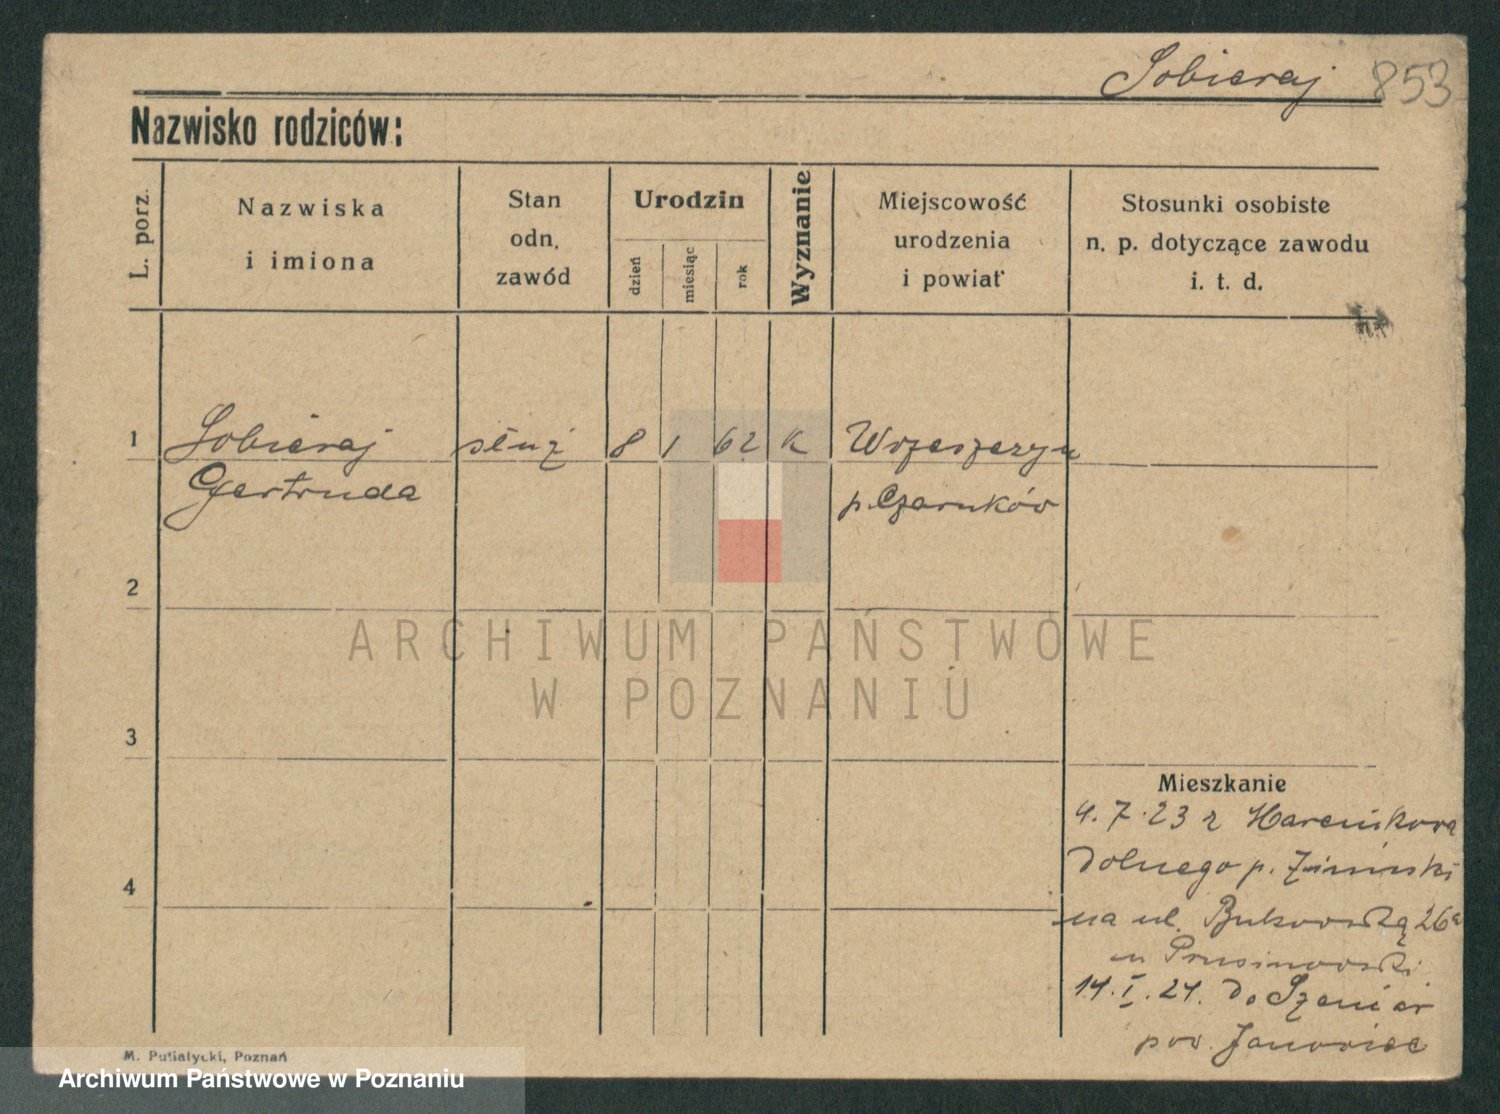 Sobieraj 853
Nazwisko rodziców:
L. porz.
Nazwiska
i imiona
Stan
odn.
zawód
Urodzin
dzień
miesiąc
rok
Wyznanie
Miejscowość
urodzenia
i powiat
Stosunki osobiste
n. p. dotyczące zawodu
i. t. d.
1 Sobieraj służ 8 1 62 K Wrzeszczyn
Gertruda p. Czarnków
2
3
Mieszkanie
4. 7. 23 z
Dolnego p.
4
na ul. Bukowską 26a
u Prusinowski
14. I. 24. do
pow. Janowiec
M. Putiatycki, Poznań
ARCHIWUM PAŃSTWOWE
W POZNANIU
Archiwum Państwowe w Poznaniu